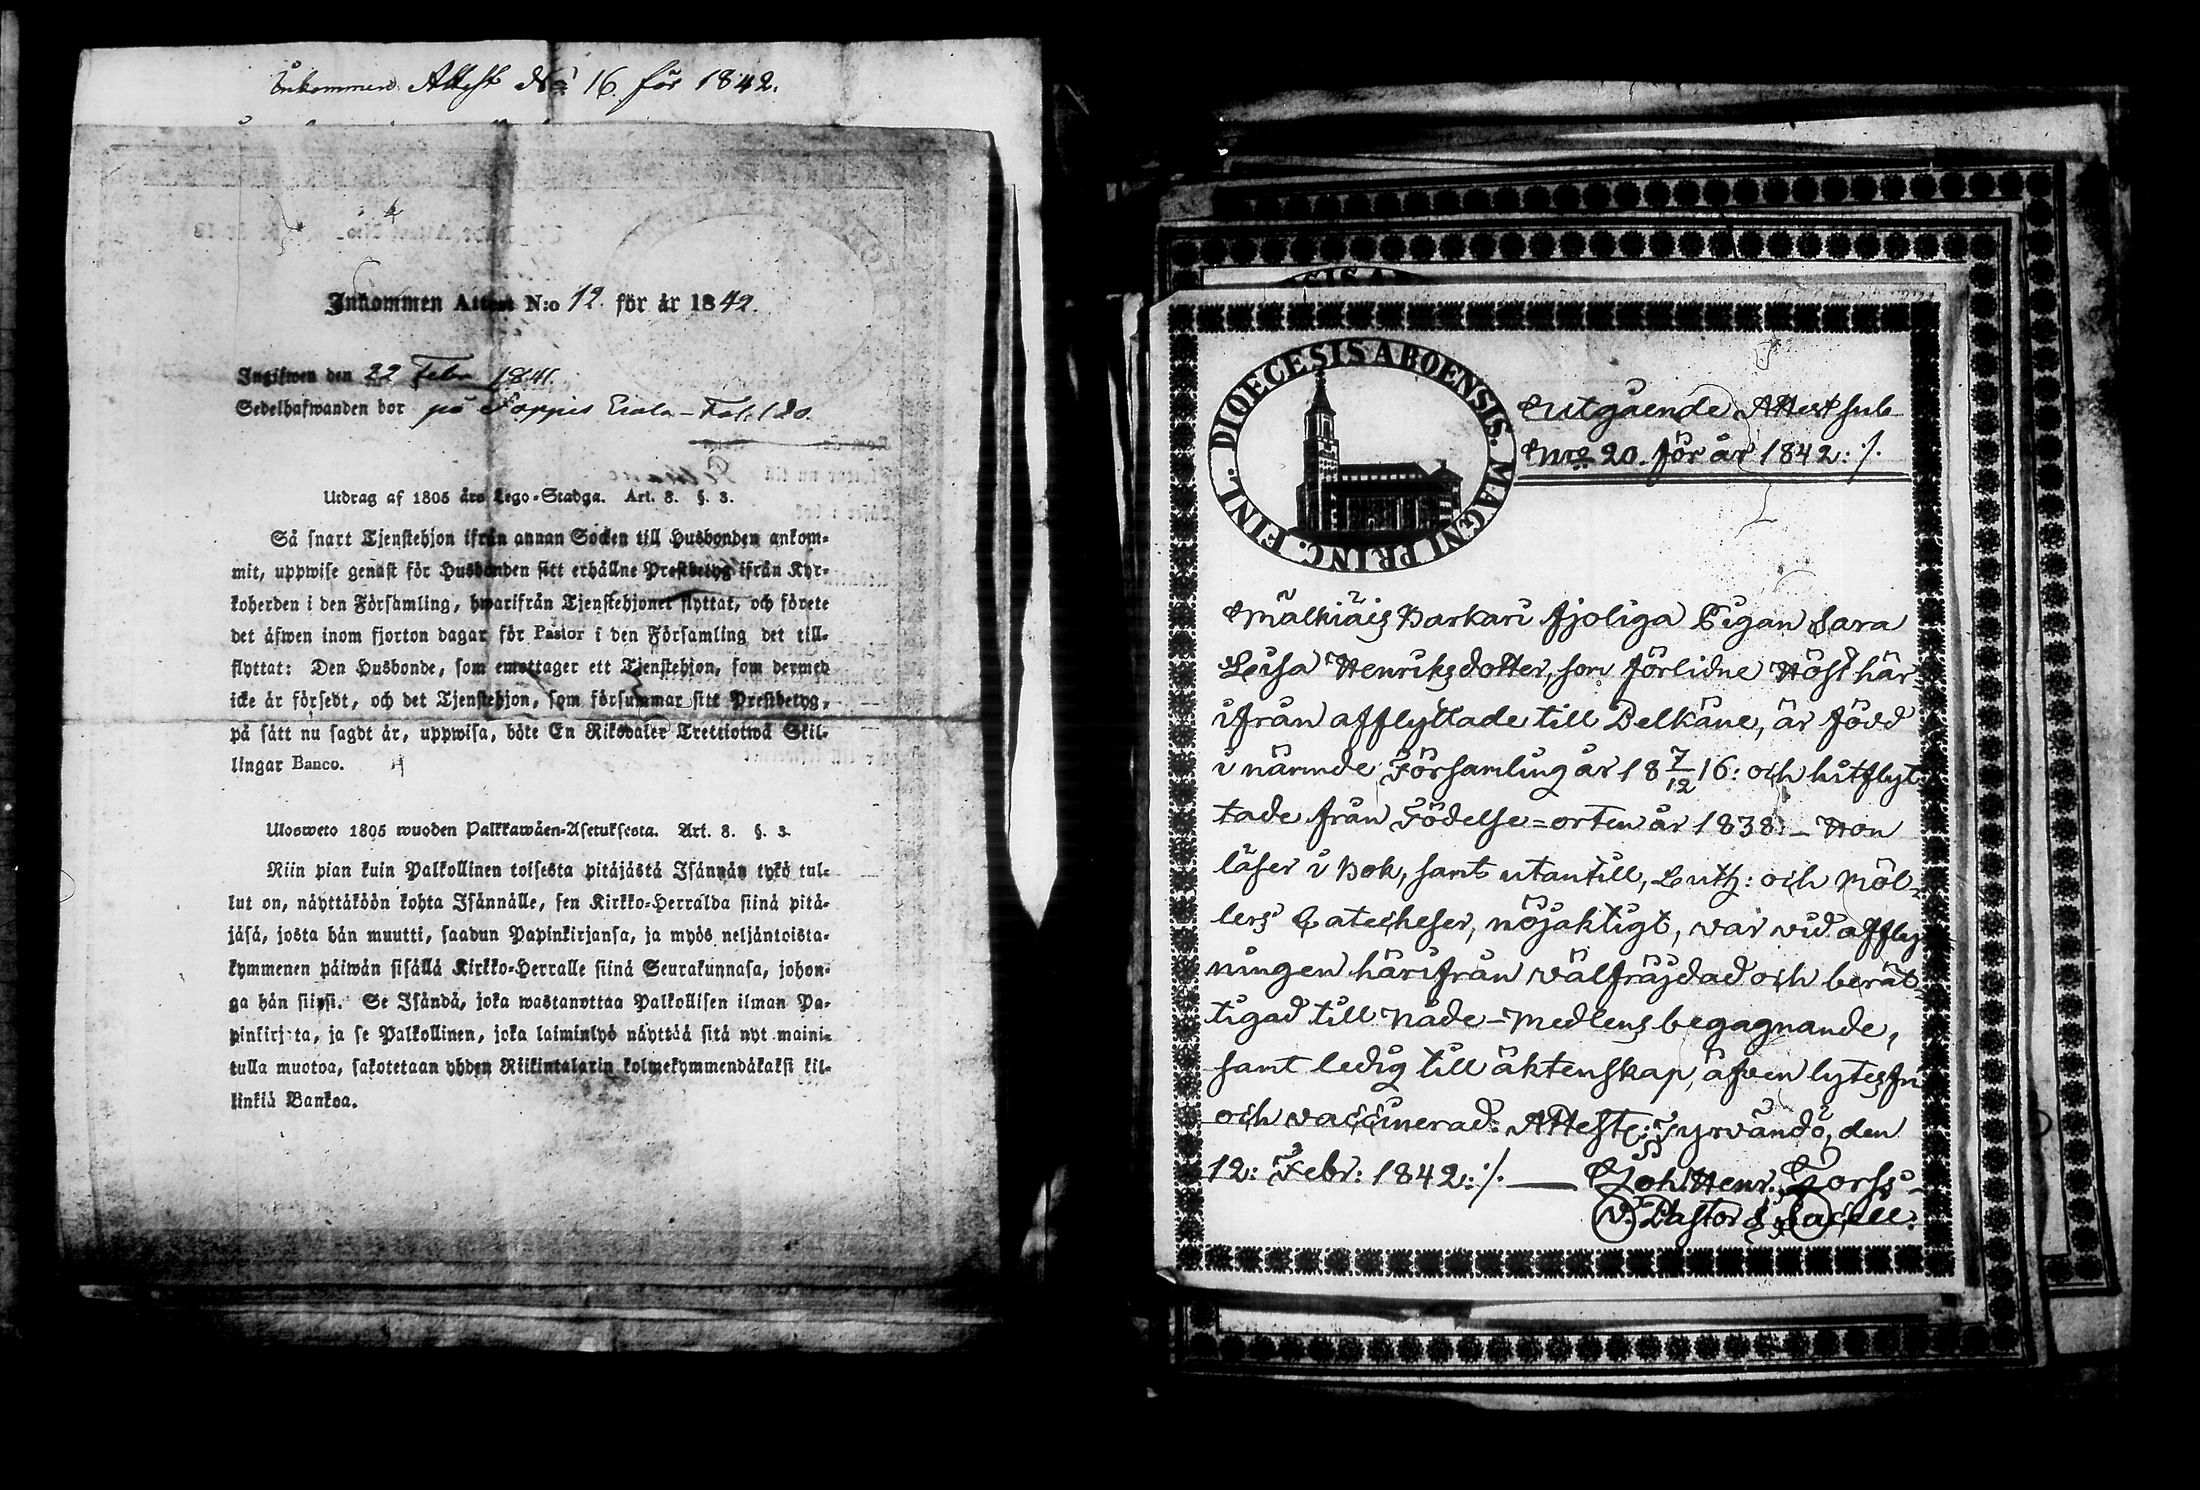 Inkommen Attest No 16. för 1842.
Inkommen Attest N:o 12. för år 1842.
Ingifwen den 22 Febr 1841.
Sedelhafwanden bor på Foppis Erola – Fol. 180.
Utdrag af 1805 års Lego-Stadga. Art. 8. §. 3.
Så snart Tjenstehjon ifrån annan Socken till Husbonden ankom-
mit, uppwise genast för Husbonden sitt erhållne Prestbetyg ifrån Kyr-
koherden i den Församling, hwarifrån Tjenstehjonet flyttat, och förete
det äfwen inom fjorton dagar för Pastor i den Församling det till-
flyttat: Den Husbonde, som emottager ett Tjenstehjon, som dermed
icke är försedt, och det Tjenstehjon, som försummar sitt Prestbetyg,
på sätt nu sagdt är, uppwisa, böte En Riksdaler Trettiotwå Skil-
lingar Banco.
Ulosweto 1805 wuoden Palkkawäen-Asetuksesta. Art. 8. §. 3.
Niin pian kuin Palkollinen toisesta pitäjästä Isännän tykö tul-
lut on, näyttäköön kohta Isännälle, sen Kirkko-Herralda siinä pitä-
jäsä, josta hän muutti, saadun Papinkirjansa, ja myös neljäntoista-
kymmenen päiwän sisällä Kirkko-Herralle siinä Seurakunnasa, johon-
ga hän siirsi. Se Isändä, joka wastanottaa Palkollisen ilman Pa-
pinkirjata, ja se Palkollinen, joka laiminlyö näyttää sitä nyt maini-
tulla muotoa, sakotetaan yhden Riikintalarin kolmekymmendäkaksi kil-
linkiä Bankoa.
DIOECESIS ABOENSIS. MAGNI PRINC. FINL.
Utgående Attest sub
Nro 20. för år 1842:/.
Mälkiäis Karkari fjoliga Pigan Sara
Leisa Henriksdotter, som förlidne Höst här
ifrån afflyttade till Pelkäne, är född
i nämde Församling år 18 7/12 16: och hitflyt
tade från Födelse=orten år 1838: – Hon
läser i Bok, samt utantill, Luth: och Möl-
lers Catecheser, nöjaktigt, var vid affly
ningen härifrån välfräjdad och berät
tigad till Nåde-Medlens begagnande,
samt ledig till äktenskap, äfven lytesfri
och vaccinerad: Attest: Tyrvändö, den
12: Febr: 1842:/. — Joh: Henr. Forss
V. Pastor & Sacell: